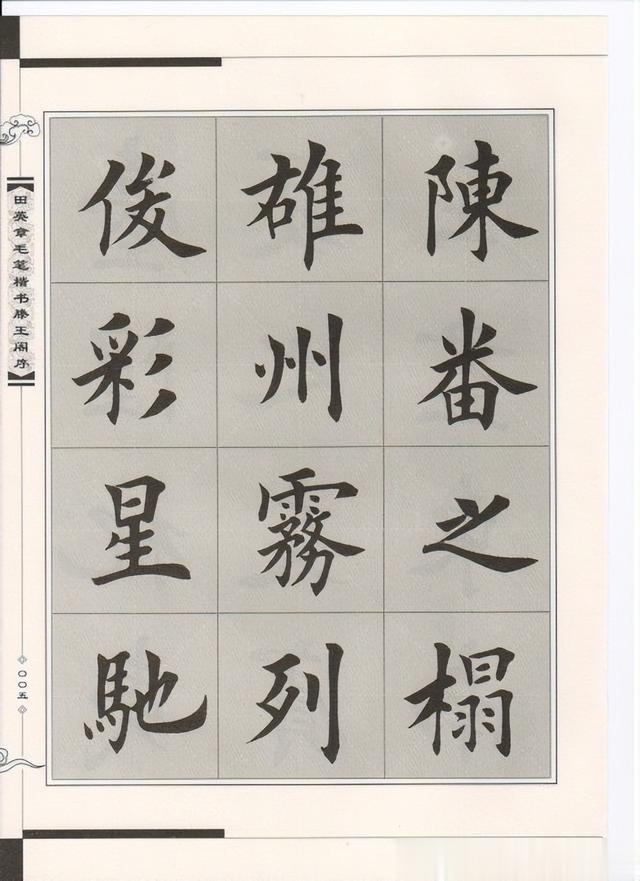 陳番之榻
雄州霧列
俊彩星馳
田英章毛笔楷书滕王阁序
〇〇五